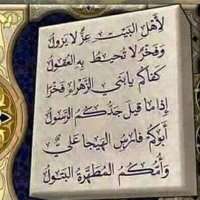 لِأَهْلِ البَيْتِ عِزٌّ لَا يَزُولُ
وَفَخْرٌ لَا تُحِيطُ بِهِ العُقُولُ
كَفَاكُمْ يَا بَنِي الزَّهْرَاءِ فَخْرًا
إِذَا مَا قِيلَ جَدُّكُمُ الرَّسُولُ
أَبُوكُمْ فَارِسُ الهَيْجَا عَلِيٌّ
وَأُمُّكُمُ المُطَهَّرَةُ البَتُولُ